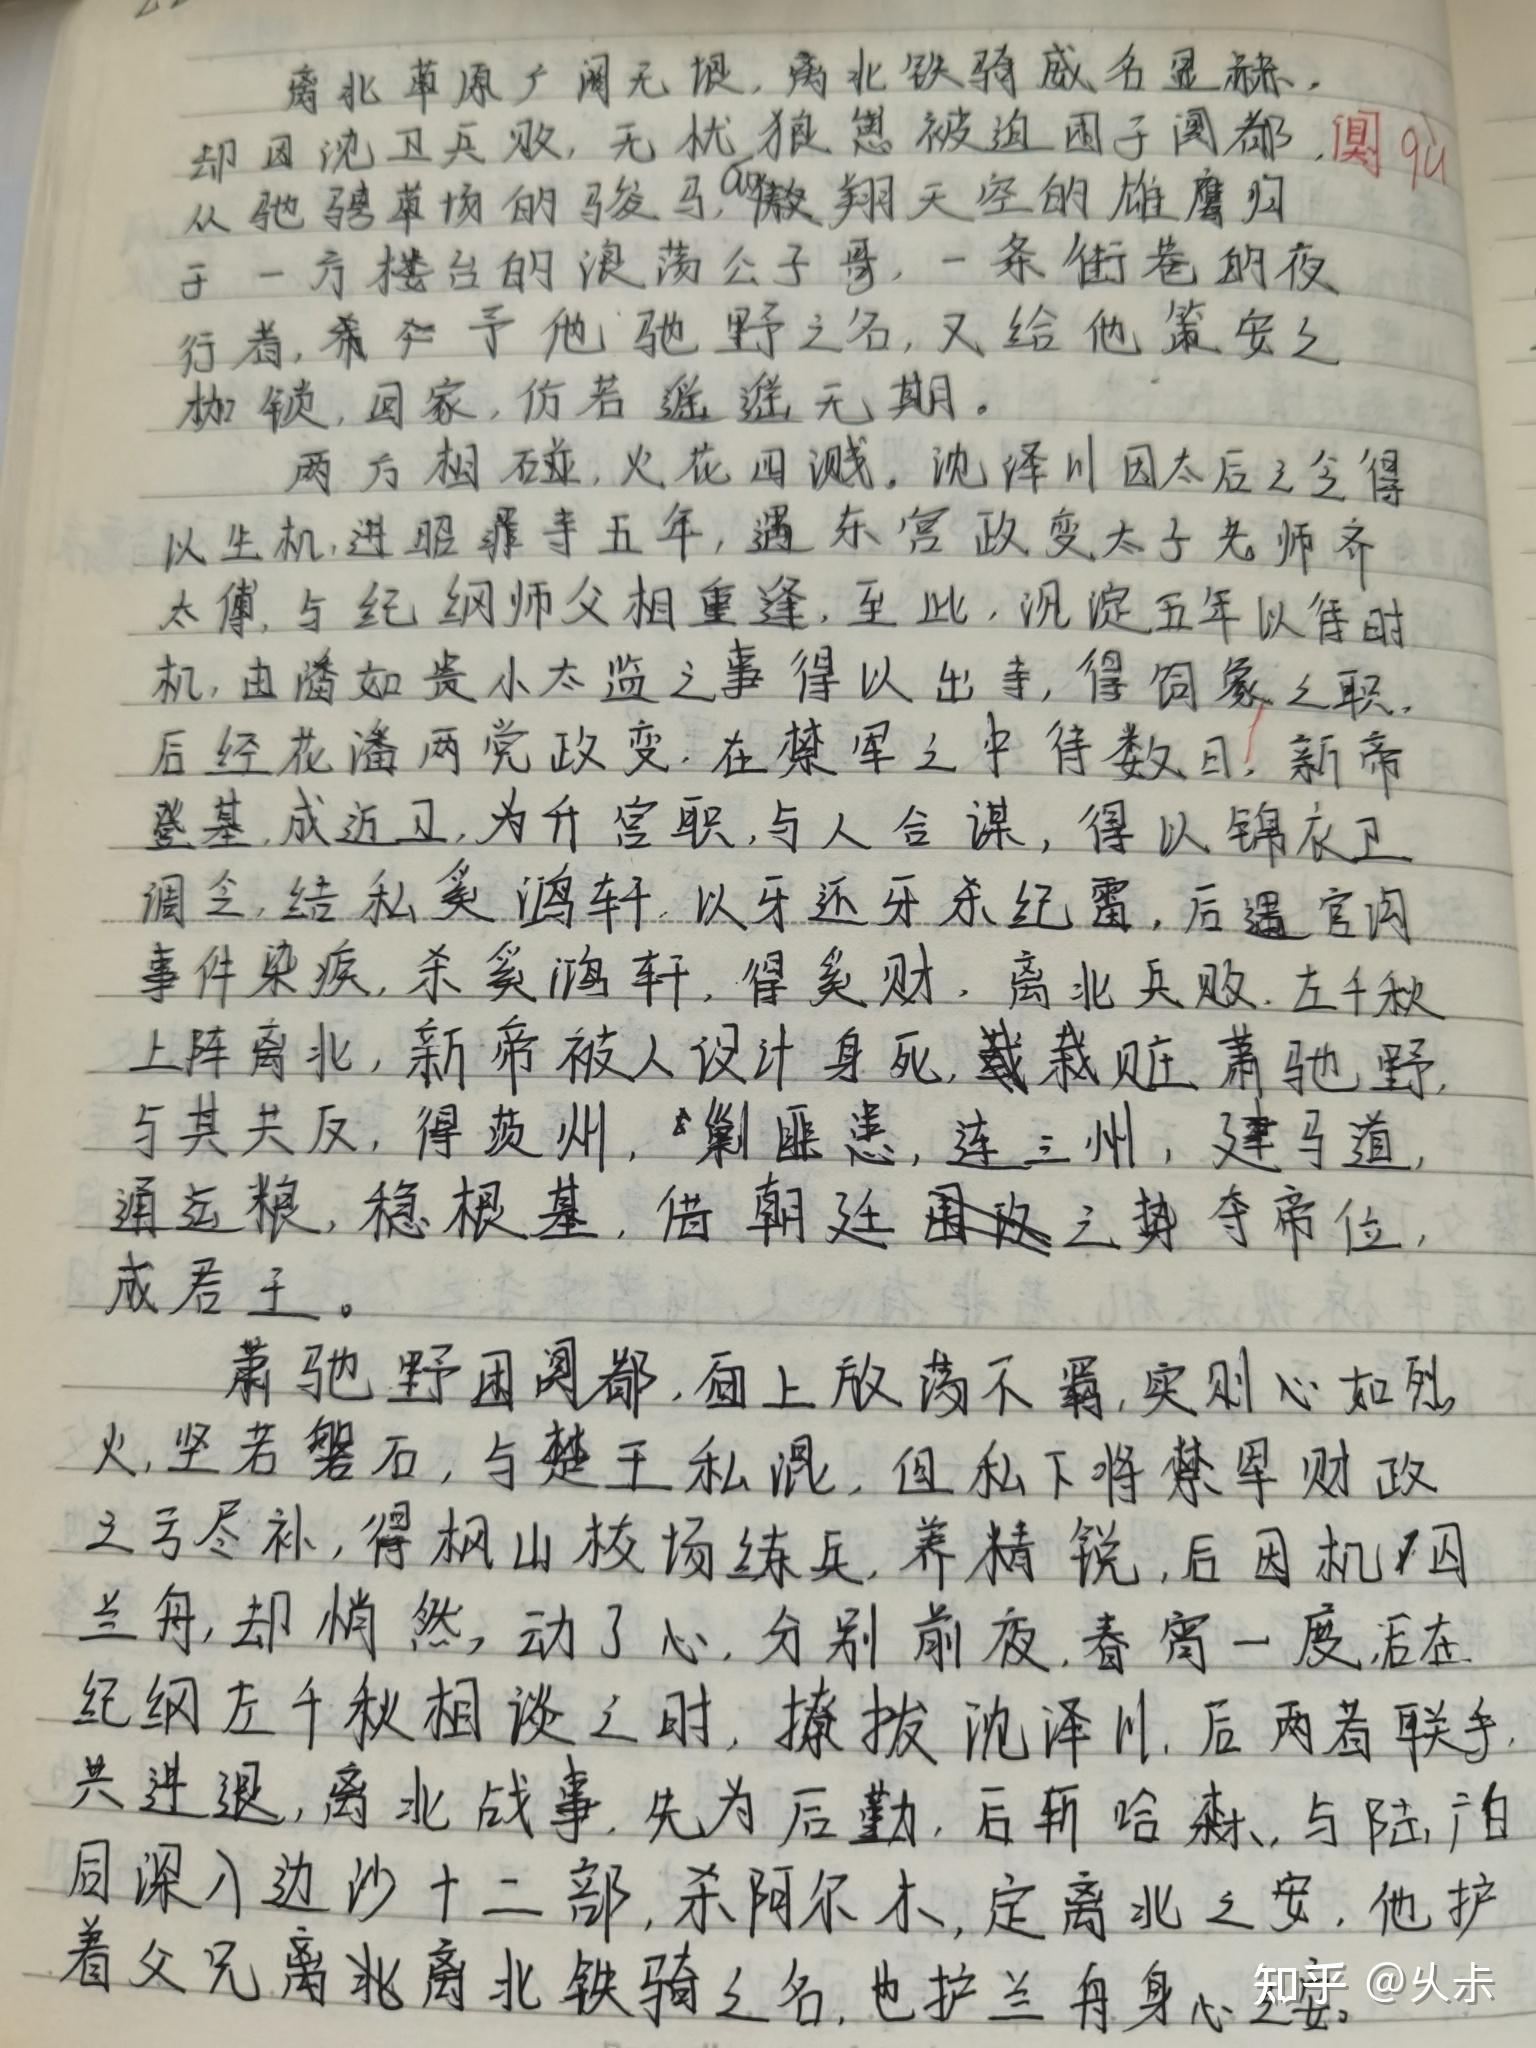 离北草原广阔无垠,离北铁骑威名显赫,
却因沈卫兵败,无忧狼崽被迫困于阒都,
从驰骋草场的骏马,傲翔天空的雄鹰归
于一方楼台的浪荡公子哥,一条街巷的夜
行者,予他驰野之名,又给他策安之
枷锁,回家,仿若遥遥无期。
两方相碰,火花四溅。沈泽川因太后之令得
以生机,进昭罪寺五年,遇东宫政变太子老师齐
太傅,与纪纲师父相重逢,至此,沉淀五年以待时
机,由潘如贵小太监之事得以出寺,得饲象之职,
后经花潘两党政变,在禁军之中待数日,新帝
登基,成近卫,为升官职,与人合谋,得以锦衣卫
调令,结私奚鸿轩,以牙还牙杀纪雷,后遇官沟
事件染疾,杀奚鸿轩,得奚财,离北兵败,左千秋
上阵离北,新帝被人设计身死,栽赃萧驰野,
与其共反,得茨州,剿匪患,连三州,建马道,
通运粮,稳根基,借朝廷之势夺帝位,
成君王。
萧驰野困阒都,面上放荡不羁,实则心如烈
火,坚若磐石,与楚王私混,但私下将禁军财政
之亏尽补,得枫山校场练兵,养精锐,后因机囚
兰舟,却悄然动了心,分别前夜,春宵一度,后在
纪纲左千秋相谈之时,撩拨沈泽川,后两者联手,
共进退,离北战事,先为后勤,后斩哈森,与陆广白
同深入边沙十二部,杀阿尔木,定离北之安,他护
着父兄离北离北铁骑之名,也护兰舟身心之安。
阒 qù
知乎 @火卡